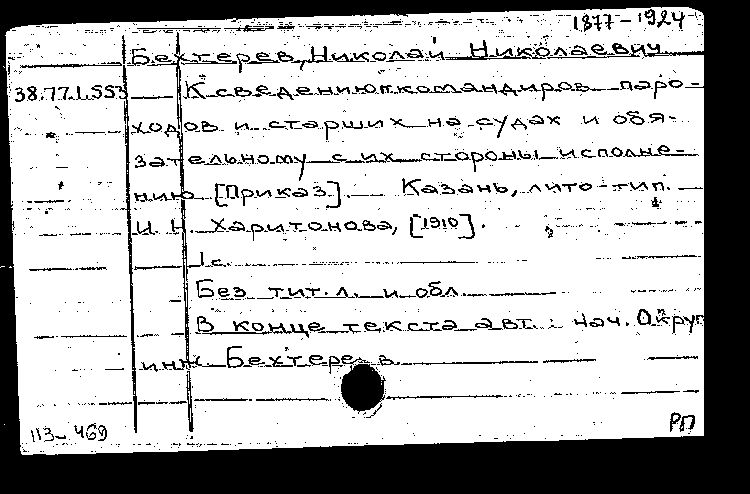 1877-1924
Бехтерев, Николай Николаевич
38.77.1.553 К сведению командиров паро-
ходов и старших на судах и обя-
зательному с их стороны исполне-
нию [Приказ]. Казань, лито-тип.
И. Н. Харитонова, [1910].
1 с.
Без тит. л. и обл.
В конце текста авт.: Нач. Округ
инж. Бехтерев
113-469 РП